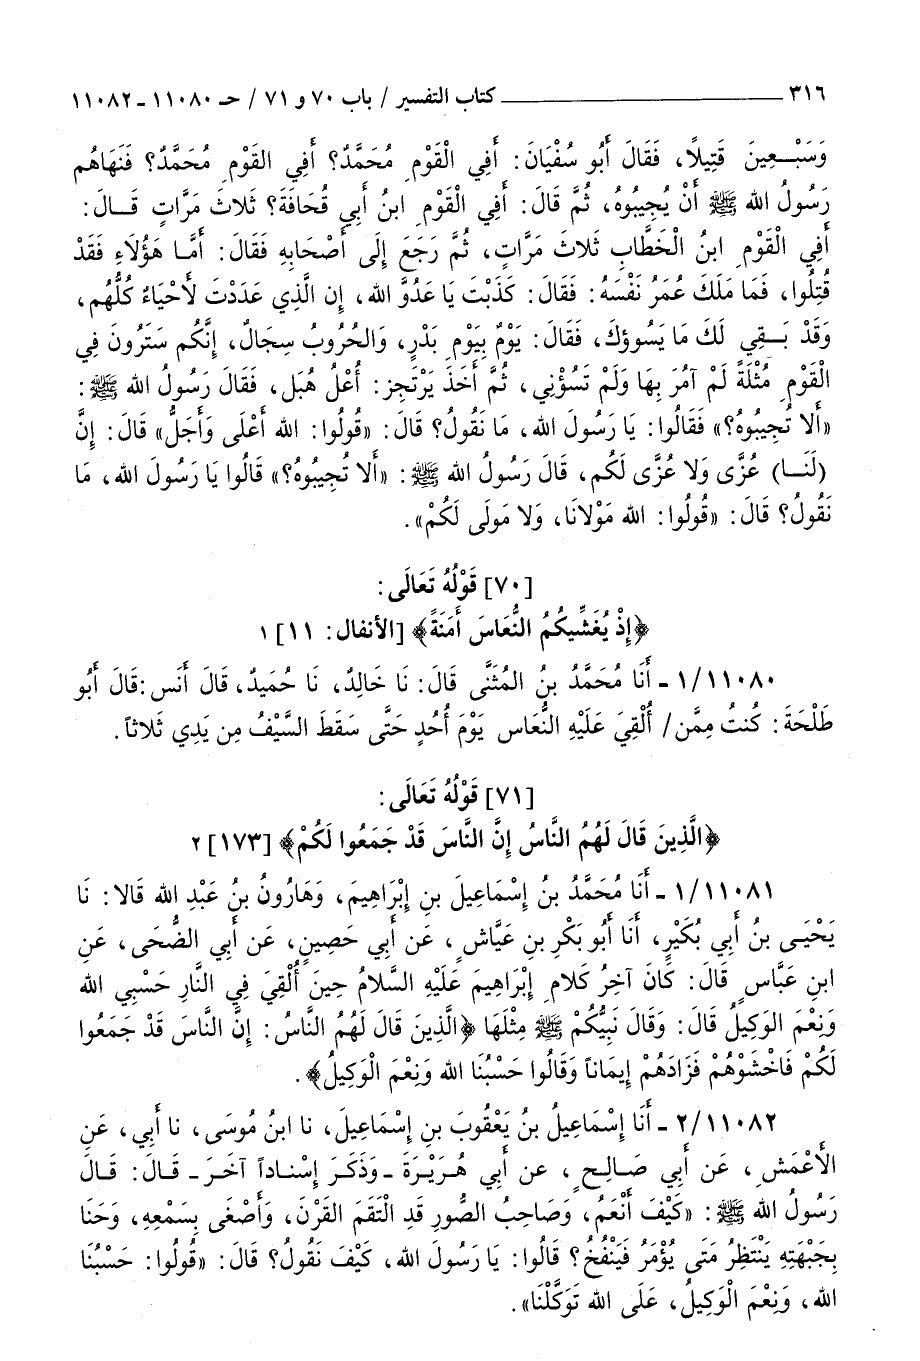 ٣١٦ ــــــــــــــــــ كتاب التفسير / باب ٧٠ و ٧١ / حـ ١١٠٨٠ ـ ١١٠٨٢
وَسَبْـعِينَ قَتِيلًا، فَقَالَ أَبُو سُفْيَانَ: أَفِي الْقَوْمِ مُحَمَّدٌ؟ أَفِي القَوْمِ مُحَمَّدٌ؟ فَنَهَاهُم
رَسُولُ الله ﷺ أَنْ يُجِيبُوهُ، ثُمَّ قَالَ: أَفِي الْقَوْمِ ابنُ أَبِي قُحَافَةَ؟ ثَلاثَ مَرَّاتٍ قَـالَ:
أَفِي الْقَوْمِ ابنُ الْخَطَّابِ ثَلاثَ مَرَّاتٍ، ثُمَّ رَجَعَ إِلَى أَصْحَابِهِ فَقَالَ: أَمَّا هَؤُلَاءِ فَقَدْ
قُتِلُوا، فَمَا مَلَكَ عُمَرُ نَفْسَهُ: فَقَالَ: كَذَبْتَ يَا عَدُوَّ الله، إِن الَّذِي عَدَدْتَ لَأحْيَاءٌ كُلُّهُم،
وَقَدْ بَـقِي لَكَ مَا يَسُوؤكَ، فَقَالَ: يَوْمٌ بِيَوْمِ بَدْرٍ، وَالحُروبُ سِجَالٌ، إِنَّكُم سَتَرُونَ فِي
الْقَوْمِ مُثْلَةً لَمْ آمُرْ بِهَا وَلَمْ تَسُؤْنِي، ثُمَّ أَخَذَ يَرْتَجِز: أُعْلُ هُبَل، فَقَالَ رَسُولُ الله ﷺ:
«أَلا تُجِيبُوهُ؟» فَقَالُوا: يَا رَسُولَ الله، مَا نَقُولُ؟ قَالَ: «قُولُوا: الله أَعْلَى وَأَجَلُّ» قَالَ: إِنَّ
(لَنَـا) عُزَّى وَلا عُزَّى لَكُم، قَالَ رَسُولُ الله ﷺ: «أَلا تُجِيبُوهُ؟» قَالُوا يَا رَسُولَ الله، مَا
نَقُولُ؟ قَالَ: «قُولُوا: الله مَوْلانَا، وَلا مَولَى لَكُمْ».
[٧٠] قَوْلُهُ تَعَالَى:
﴿إِذْ يُغَشِّيكُمُ النُّعَاسَ أَمَنَةً﴾ [الأنفال: ١١] ١
١/١١٠٨٠ ـ أَنَا مُحَمَّدُ بنُ المُثَنَّى قَالَ: نَا خَالِدٌ، نَا حُمَيدٌ، قَالَ أَنَس: قَالَ أَبُو
طَلْحَةَ: كُنتُ مِمَّن/ أُلْقِيَ عَلَيْهِ النُّعَاس يَوْمَ أُحُدٍ حَتَّى سَقَطَ السَّيْفُ مِن يَدِي ثَلاثاً.
[٧١] قَوْلُهُ تَعَالَى:
﴿الَّذِينَ قَالَ لَهُمُ النَّاسُ إِنَّ النَّاسَ قَدْ جَمَعُوا لَكُمْ﴾ [١٧٣] ٢
١/١١٠٨١ ـ أَنَا مُحَمَّدُ بنُ إِسْمَاعِيلَ بنِ إِبْرَاهِيمَ، وَهَارُونُ بنُ عَبْدِ الله قَالا: نَا
يَحْيَـى بنُ أَبِي بُكَيْرٍ، أَنَا أَبُو بَكْرِ بنِ عَيَّاشٍ، عَن أَبِي حَصِينٍ، عَن أَبِي الضُّحَى، عَنِ
ابنِ عَبَّاسٍ قَالَ: كَانَ آخِرُ كَلامِ إِبْرَاهِيمَ عَلَيْهِ السَّلامُ حِينَ أُلْقِيَ فِي النَّارِ حَسْبِي الله
وَنِعْمَ الوَكِيلُ قَالَ: وَقَالَ نَبِيُّكُمْ ﷺ مِثْلَهَا ﴿الَّذِينَ قَالَ لَهُمُ النَّاسُ: إِنَّ النَّاسَ قَدْ جَمَعُوا
لَكُمْ فَاخْشَوْهُمْ فَزَادَهُمْ إِيمَاناً وَقَالُوا حَسْبُنَا الله وَنِعْمَ الْوَكِيلُ﴾.
٢/١١٠٨٢ ـ أَنَا إِسْمَاعِيلُ بنُ يَعْقُوبَ بنِ إِسْمَاعِيلَ، نا ابنُ مُوسَى، نا أَبِي، عَنِ
الأَعْمَشِ، عَن أَبِي صَـالِـحٍ، عن أَبِي هُـرَيْـرَةَ ـ وَذَكَرَ إِسْنـاداً آخَـرَ ـ قَـالَ: قَـالَ
رَسُولُ الله ﷺ: «كَيْفَ أَنْعَمُ، وَصَاحِبُ الصُّورِ قَدِ التَقَمَ القَرْنَ، وَأَصْغَى بِسَمْعِهِ، وَحَنَا
بِجَبْهَتِهِ يَنْتَظِرُ مَتَى يُؤْمَرُ فَيَنْفُخُ؟ قَالُوا: يَا رَسُولَ الله، كَيْفَ نَقُولُ؟ قَالَ: «قُولُوا: حَسْبُنَا
الله، وَنِعْمَ الْوَكِيلُ، عَلَى الله تَوَكَّلْنَا».